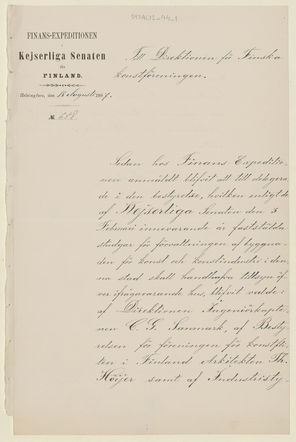 FINANS-EXPEDITIONEN
Kejserliga Senaten
för
FINLAND.
Helsingfors, den 18 Augusti 1887.
№ 658
Till Direktionen för Finska
konstföreningen.
Sedan hos Finans Expeditio-
nen anmäldt blifvit att till delegera-
de i den bestyrelse, hvilken enligt de
af Kejserliga Senaten den 3
Februari innevarande år fastställda
stadgar för förvaltningen af byggna-
den för konst och konstindustri i den-
na stad skall handhafva tillsyn öf-
ver ifrågavarande hus, blifvit valde:
af Direktionen Ingeniörkapte-
nen C. G. Sanmark, af Besty-
relsen för föreningen för konstfli-
ten i Finland Arkitekten Th.
Höijer samt af Industristy-